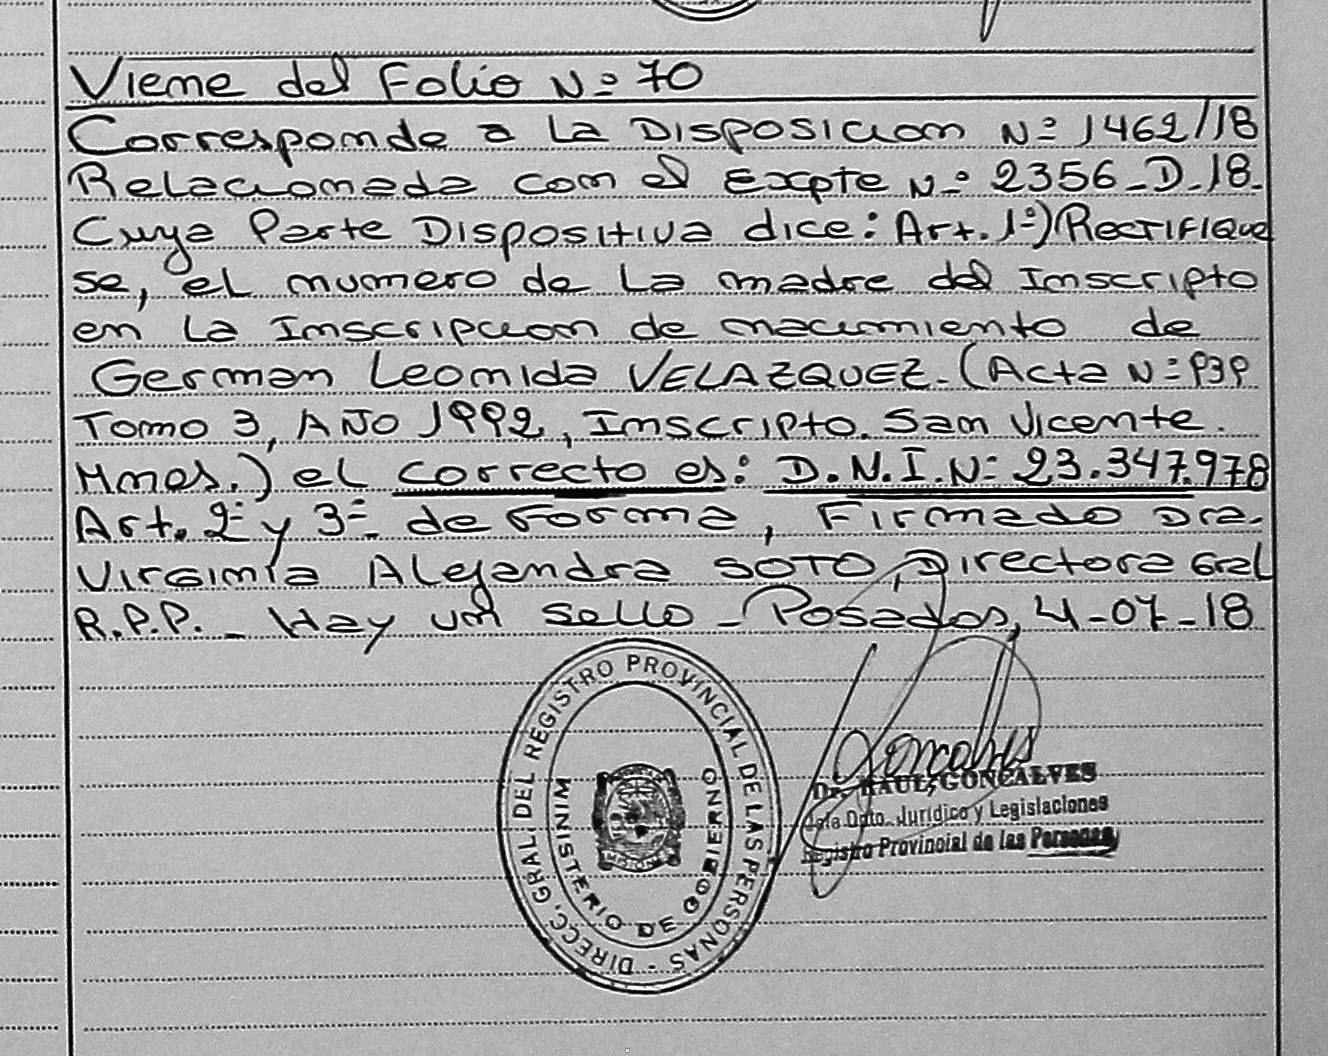 Viene del Folio Nº 70
Corresponde a La Disposicion Nº 1462/18
Relacionada con el Expte Nº 2356-D-18.
Cuya Parte Dispositiva dice: Art. 1º) Rectifique
se, el numero de La madre del Inscripto
en La Inscripcion de nacimiento de
German Leonida VELAZQUEZ. (Acta Nº 939
Tomo 3, AÑO 1992, Inscripto. San Vicente.
Mnes.) el correcto es: D.N.I.Nº 23.347.978
Art. 2º y 3º. de Forma, Firmado Dra.
Virginia Alejandra SOTO, Directora Gral
R.P.P. - Hay un Sello - Posadas, 4-07-18
DIRECC. GRAL. DEL REGISTRO PROVINCIAL DE LAS PERSONAS -
MINISTERIO DE GOBIERNO
Goncalves
Dr. RAUL GONCALVES
Jefe Dpto. Jurídico y Legislaciones
Registro Provincial de las Personas